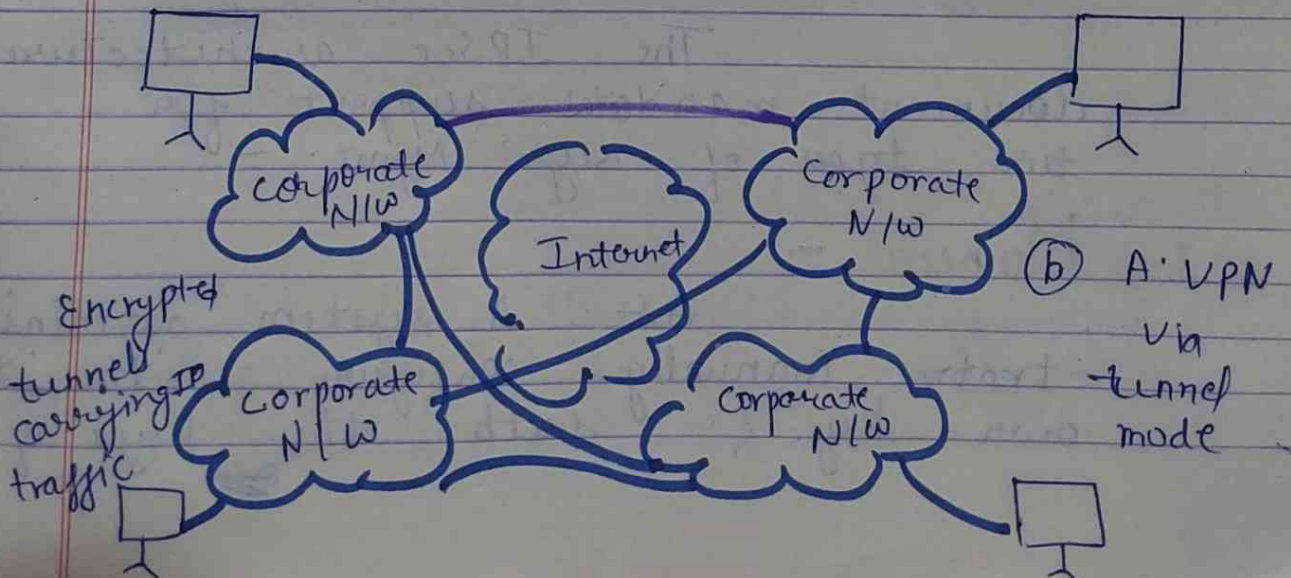 Corporate
N/W
Corporate
N/W
Internet
Encrypted
tunnels
carrying IP
traffic
Corporate
N/W
Corporate
N/W
(b) A. VPN
Via
tunnel
mode